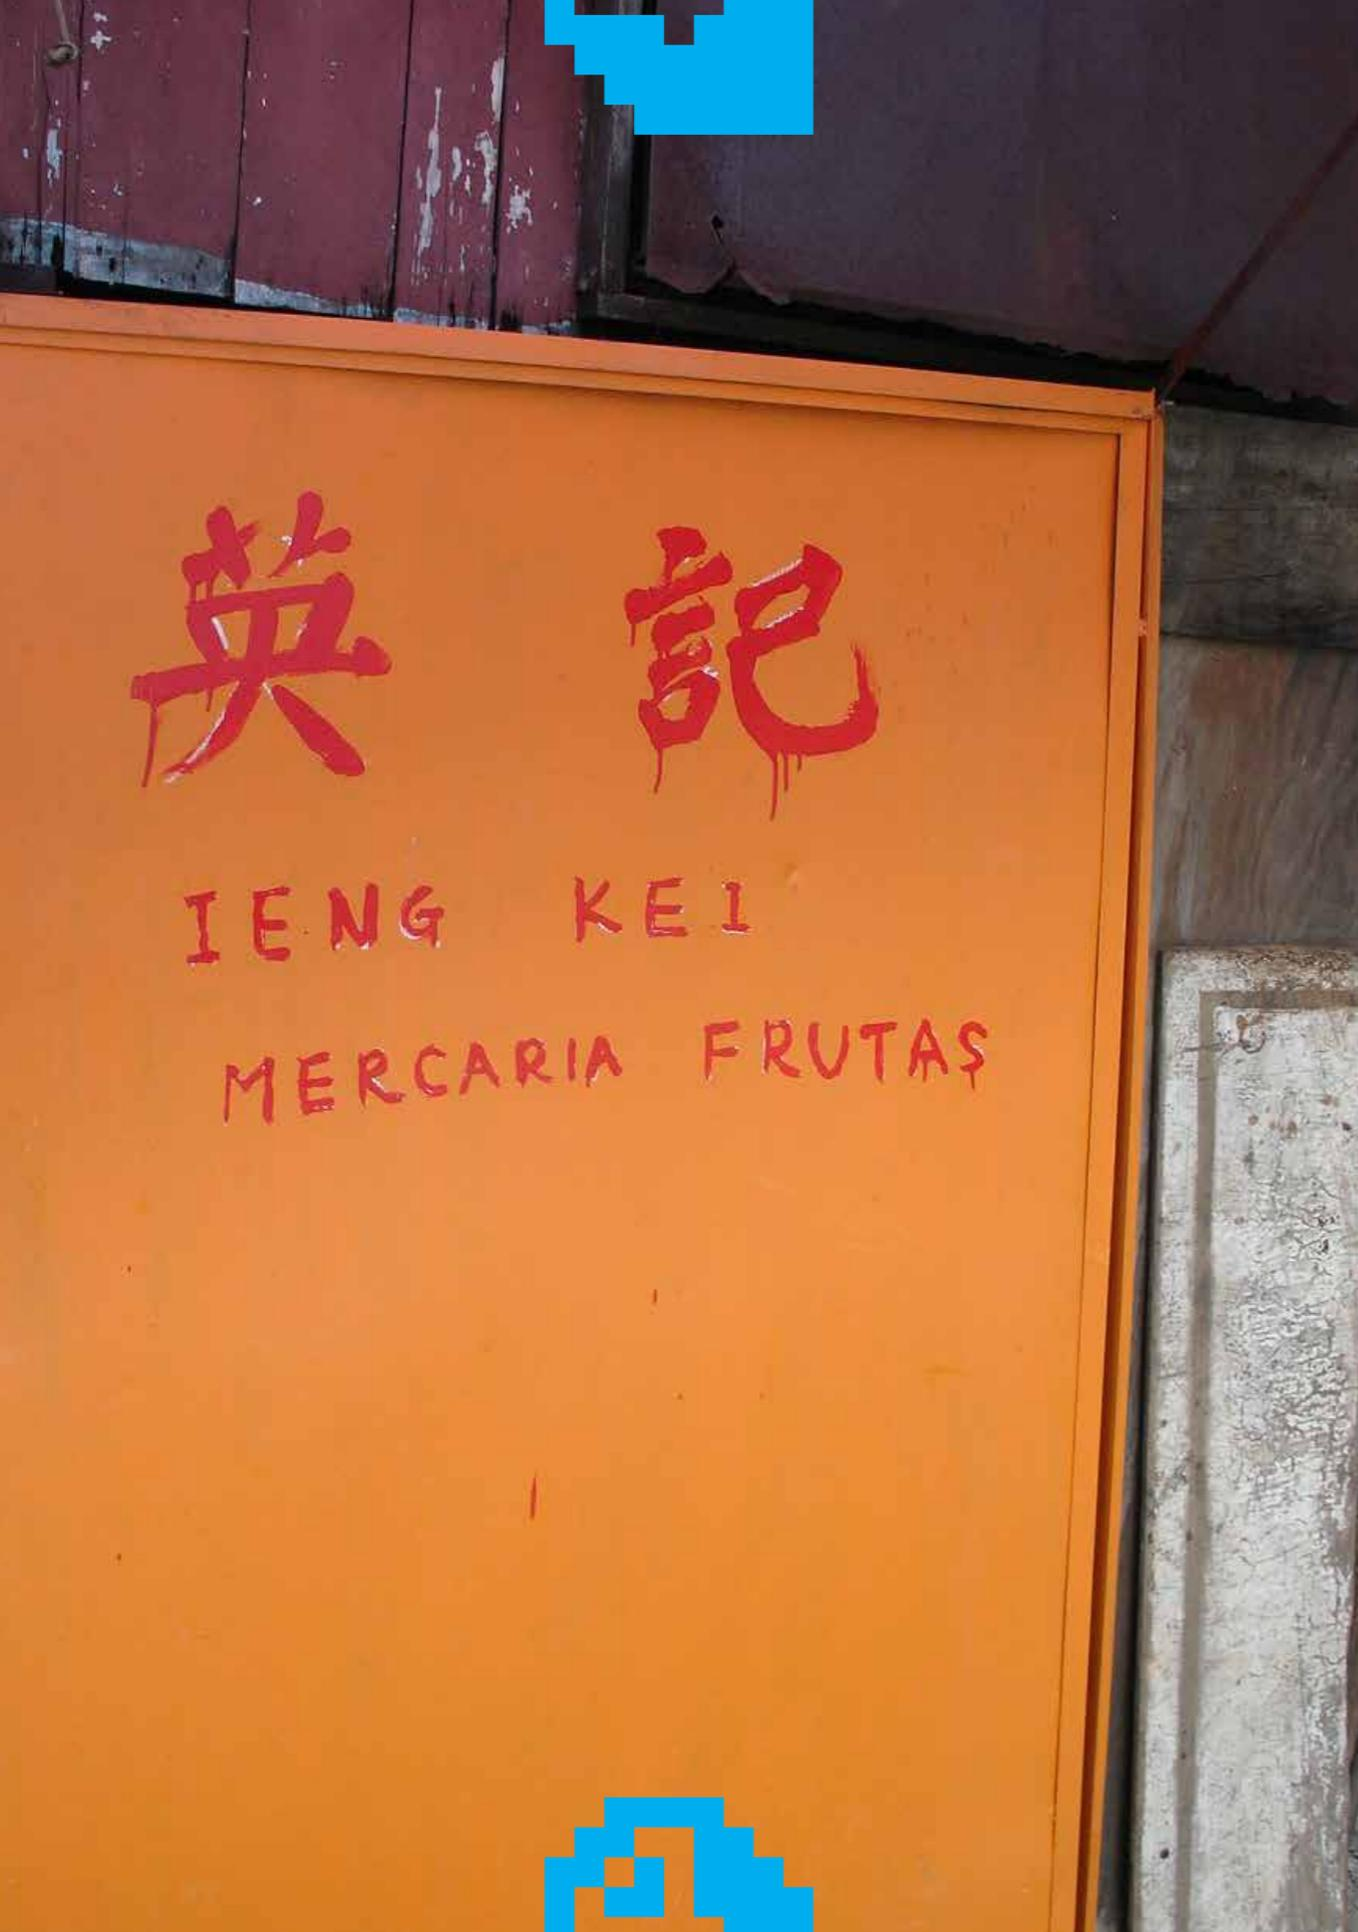 英 記
IENG KEI
MERCARIA FRUTAS